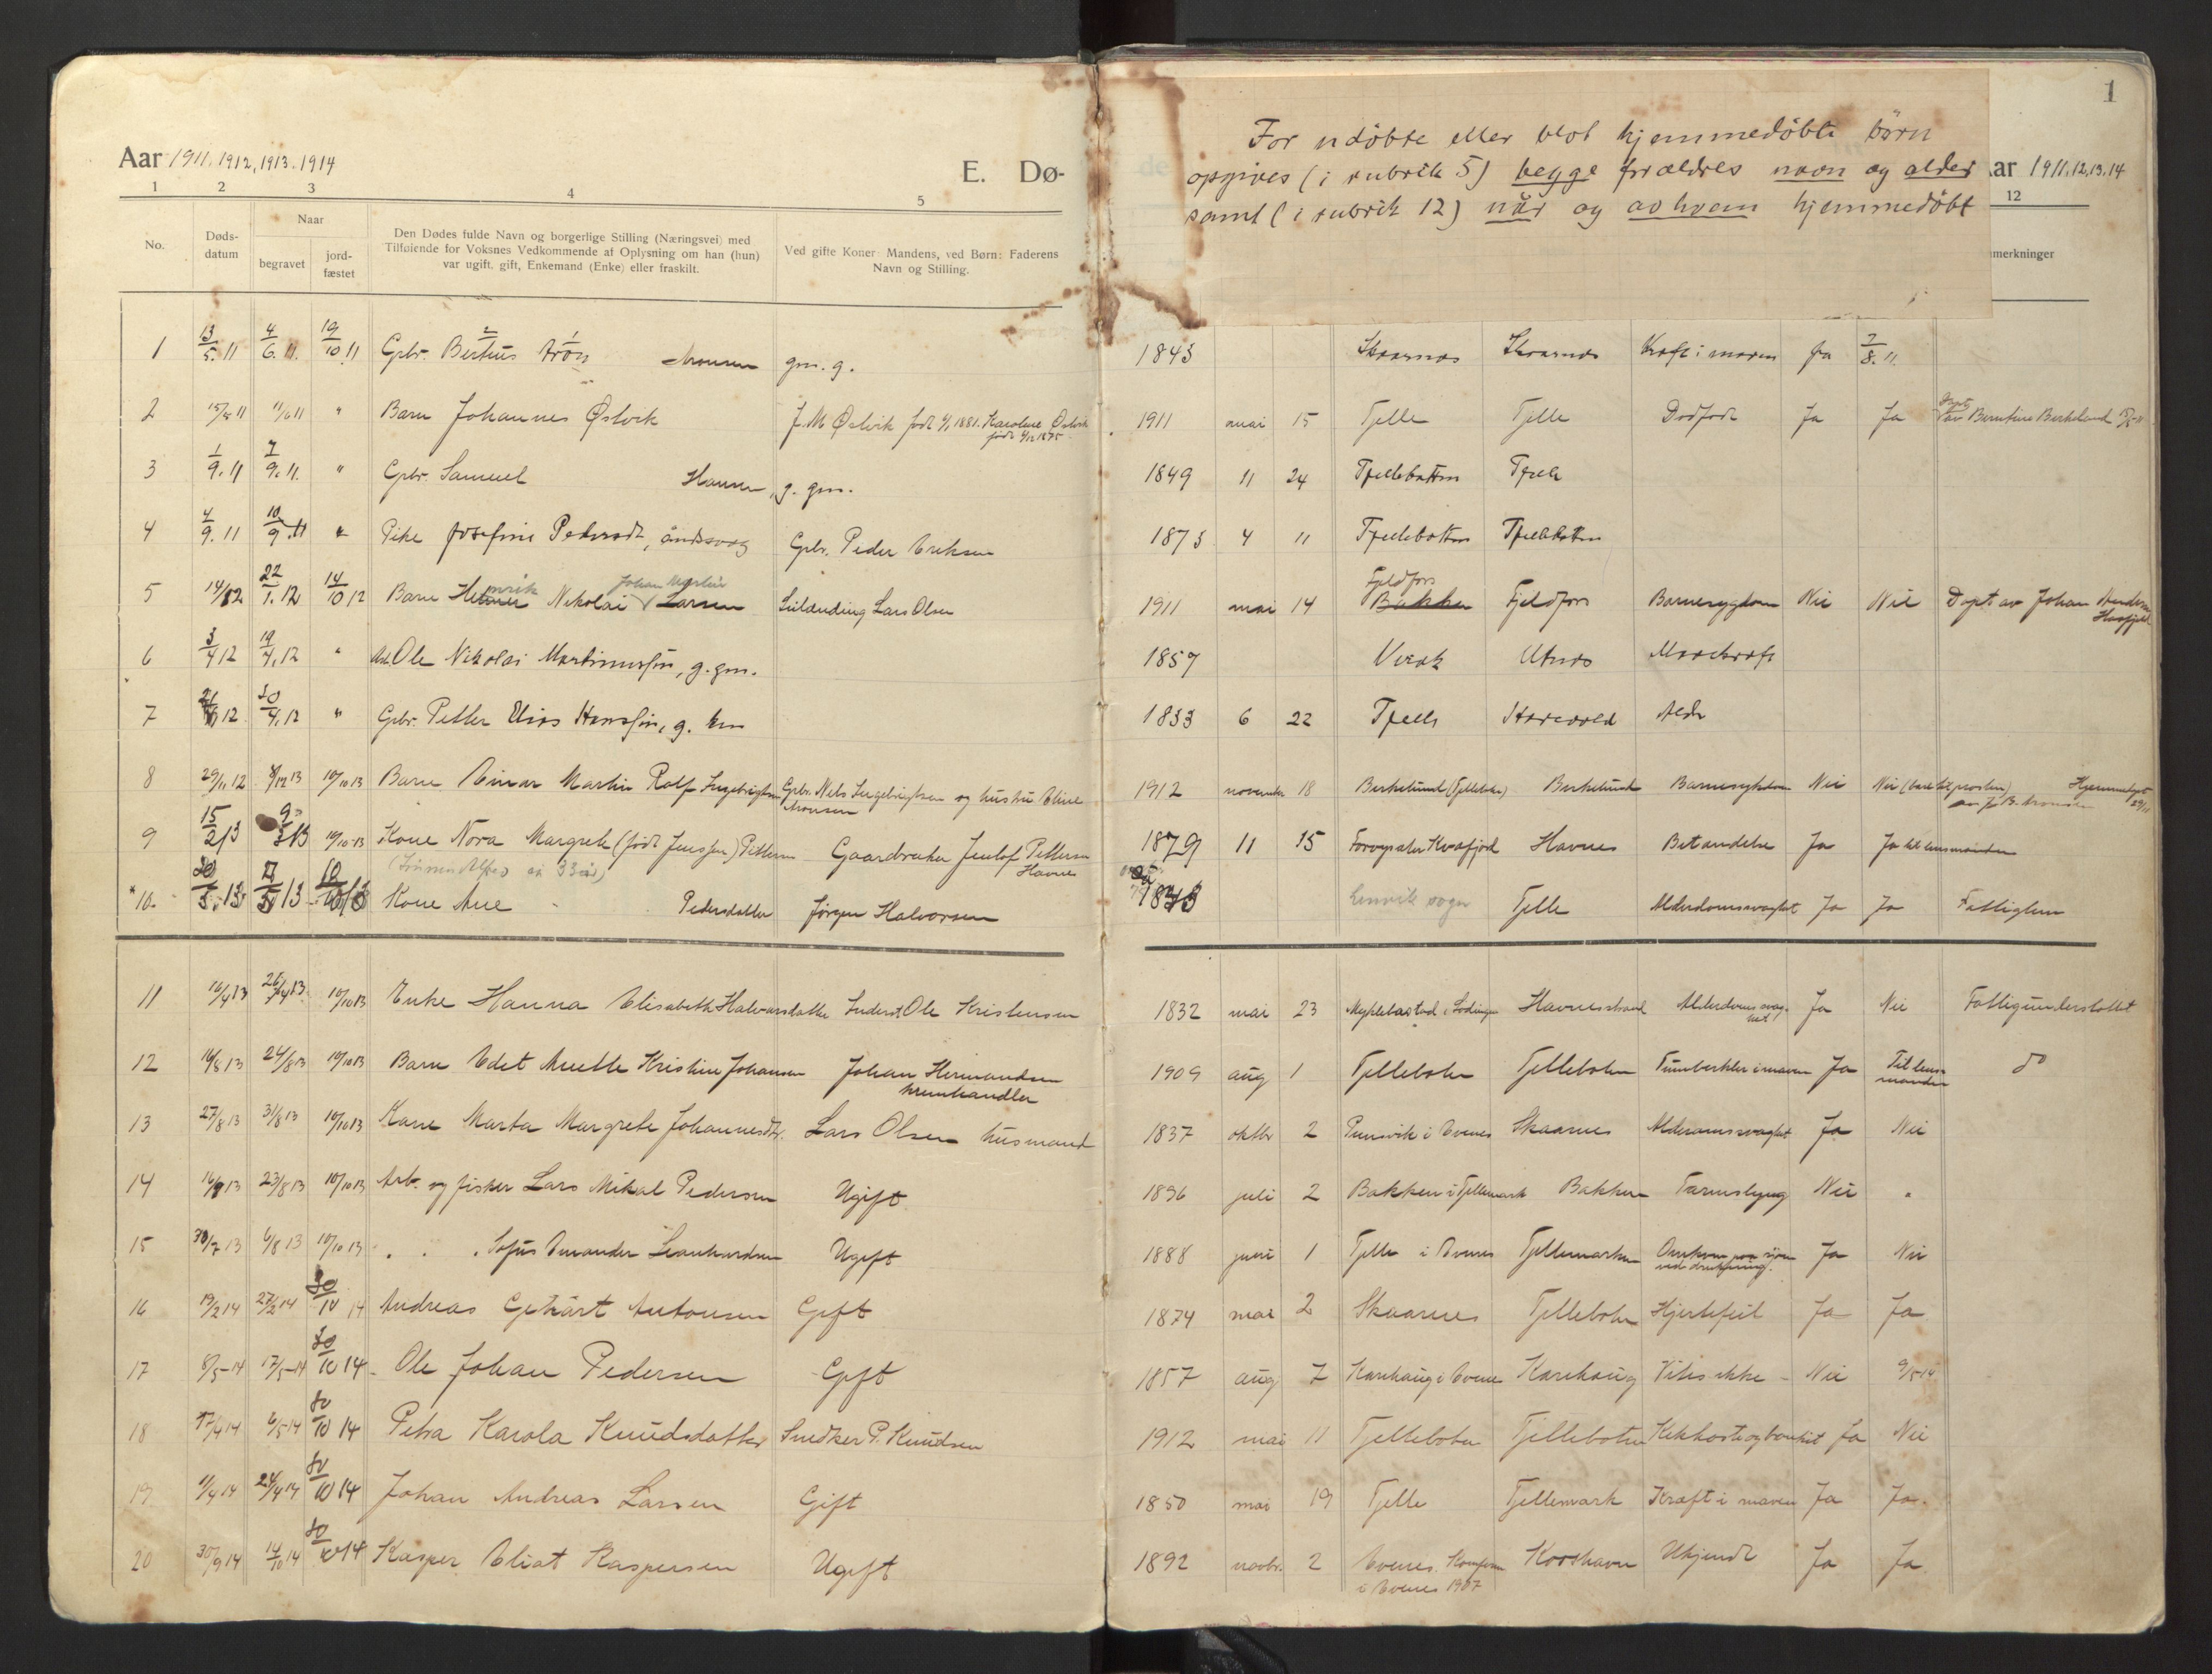 Aar 1911. 1912, 1913. 1914
E. Dø-
1 2 3 4 5
No.
Døds-
datum
Naar
begravet
jord-
fæstet
Den Dødes fulde Navn og borgerlige Stilling (Næringsvei) med
Tilføiende for Voksnes Vedkommende af Oplysning om han (hun)
var ugift, gift, Enkemand (Enke) eller fraskilt.
Ved gifte Koner: Mandens, ved Børn: Faderens
Navn og Stilling.
1
For udöbte eller blot hjemmedöbte börn
opgives (i rubrik 5) begge forældres navn og alder
samt (i rubrik 12) når og av hvem hjemmedöbt
Aar 1911.12.13.14
12
merkninger
1 13/5.11 4/6.11. 19/10 11 Gbr. Bertus Aron Aronsen gm. g. 1843 Skaarnes Skaarnes Kræft i maven Ja 7/8.11.
2 15/5 11 11/6 11 " Barn Johannes Østvik J. M. Østvik født 1881. Karoline Østvik 1911 mai 15 Tjelle Tjelle Dødfødt Ja Ja Døpt av Berntine Berkeland 15/5-11
født 1875
3 1/9.11 7/9.11. " Gbr. Samuel Hansen, g. gm. 1849 11 24 Tjellebotten Tjelle
4 4/9.11 10/9.11 " Pike Josefine Pedersdt, åndssvag Gbr. Peder Eriksen 1873 4 11 Tjellebotten Tjellebotten
5 14/1 12 22/1.12 14/10 12 Barn Helmer Henrik Nikolai Johan Martin Larsen Lidænding Lars Olsen 1911 mai 14 Bakken Fjeldfors Fjeldfors Barnesygdom Nei Nei Døpt av Johan
6 3/4 12 19/4.12 " Ole Nikolai Martinussen, g. gm. 1857 Virak Utnes Mavekræft
7 4,12 30/4.12 " Gbr. Petter Elias Hanssen, g. km 1833 6 22 Tjelle Storevold Alder
8 29/11 12 12 13 10/10 13 Barn Einar Martin Rolf Ingebrigtsen Gbr. Nels Ingebrigtsen og hustru Eline 1912 november 18 Berkelund (Tjellebotn) Berkelund Barnesykdom Nei Nei Hjemmedøpt 29/11
Aronsen
9 15/2 13 9/3 13 10/10-13 Kone Nora Margrete (født Jenssen) Pettersen Gaardbruker Jentof Pettersen 1879 11 15 Kvæfjord Havnes Betændelse Ja Ja til lensmanden
Havnes
10. 13 13 Kone Ane Pedersdatter Jørgen Halvorsen 1843 Lenvik sogn Tjelle Alderdomssvaghet Ja Ja Fattiglem
11 16/4 13 26/4 13 10/10 13 Enke Hanna Elisabeth Halvarsdatter Inderst Ole Kristensen 1832 mai 23 Myklebostad i Lødingen Havnesstrand Alderdomssvaghet Ja Nei Fattigunderstøttet
12 16/8 13 24/8 13 10/10 13 Barn Edet Anette Kristine Johansen Johan Hermandsen 1909 aug 1 Tjellebotn Tjellebotn Tuberkler i maven Ja Til lens-
manden do
kremhandler
13 27/8 13 31/8 13 10/10 13 Kone Marta Margrete Johannesdtr. Lars Olsen husmand 1837 oktbr 2 Punsvik i Evenes Skaarnes Alderdomssvaghet Ja Nei
14 16/8 13 23/8 13 10/10 13 Arb. og fisker Lars Mikal Pedersen Ugift 1896 juli 2 Bakken i Tjellemark Bakken Tarmslyng Nei "
15 30/7 13 6/8 13 10/10 13 " " " Sofus Emander Leonhardsen Ugift 1888 juni 1 Tjelle i Evenes Tjellemarken Omkom paa sjøen Ja Nei
ved drukning.
16 19/2 14 27/2 14 30/10 14 Andreas Gerhart Antonsen Gift 1874 mai 2 Skaarnes Tjellebotn Hjertefeil Ja Ja
17 8/5-14 17/5-14 30/10 14 Ole Johan Pedersen Gift 1857 aug 7 Karihaug i Evenes Karihaug Vites ikke - Nei 9/5 14
18 17/4 14 6/5 14 30/10 14 Petra Karola Knudsdatter Snedker P. Knudsen 1912 mai 11 Tjellebotn Tjellebotn Kikhoste og bronkit Ja Nei
19 11/4 14 24/4 14 30/10 14 Johan Andreas Larsen Gift 1850 mai 19 Tjelle Tjellemark Kræft i maven Ja Ja.
20 30/9 14 14/10 14 30/10 14 Kasper Eliat Kaspersen Ugift 1892 novbr. 2 Evenes. Konfirm Korshavn Ukjendt Ja Ja
i Evenes 1907